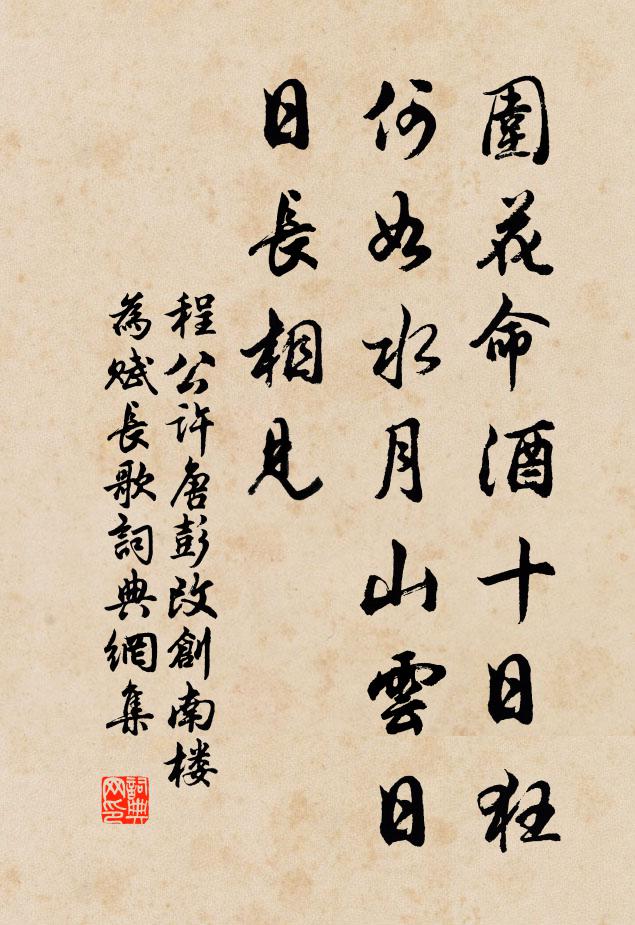 圍花命酒十日狂
何如水月山雲日
日長相見
程公許唐彭改創南楼
為賦長歌詞典網集
詞典网印